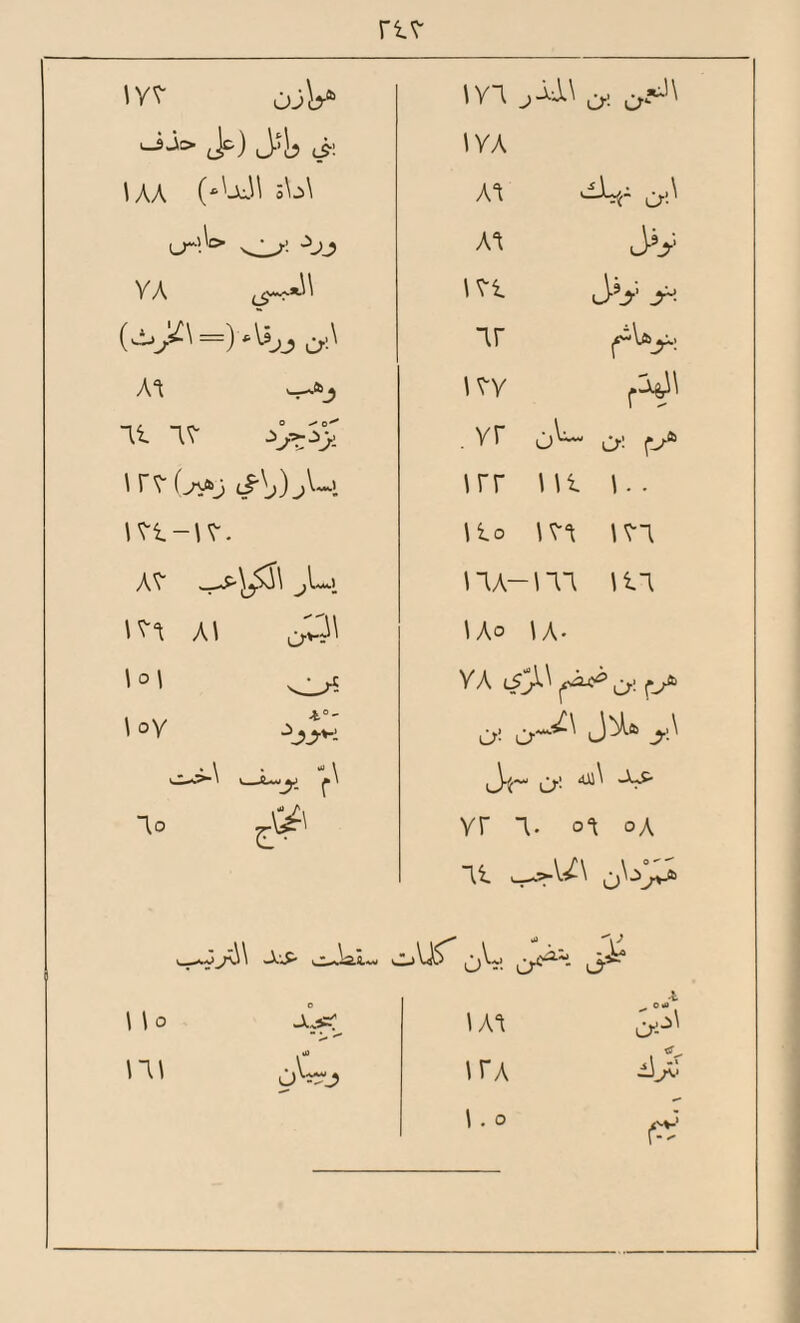 ٢٤٣
النعمن بن المنذر ١٧٦
١٧٨
ابن نهيك ٨٩
نوفل ٨٩
بنو نوفل ١٣٤
بنو هاشم ٦٢
الهيثم ١٣٧
هرم بن سنان ٧٢
١٠٠ ١١٤ ١٢٢
١٣٦ ١٣٩ ١٤٥
١٤٦ ١٦٦-١٦٨
١٨٠ ١٨٥
هرم بن ضمضم المرّى ٧٨
ابو هلال الحسن بن
عبد الله بن سهل
٥٨ ٥٩ ٦٠ ٧٢
الحاجب ٦٤
هوازن ١٧٣
بنى وائل (على حذف
اداة النداء) ١٨٨
ورد بن حابس
العبسى ٧٨
ابن ورقاء (= الحارث)
وهب ٨٩
يَزْدَجِرْد ٦٣ ٦٤
يسار (راعى زهير) ١٢٣
١٣٠-١٣٤
يسار الكواعب ٨٣
اليَمَن ٨١ ١٣٩
١٥١
١٥٧
امّ يوسف اخت
الحجّاج ٦٥
مُلحق يتضمّن بيان كلمات سقطت عند الترتيب
١٨٩
١٢٨
تميم ١٠٥
١١٥
١٦١